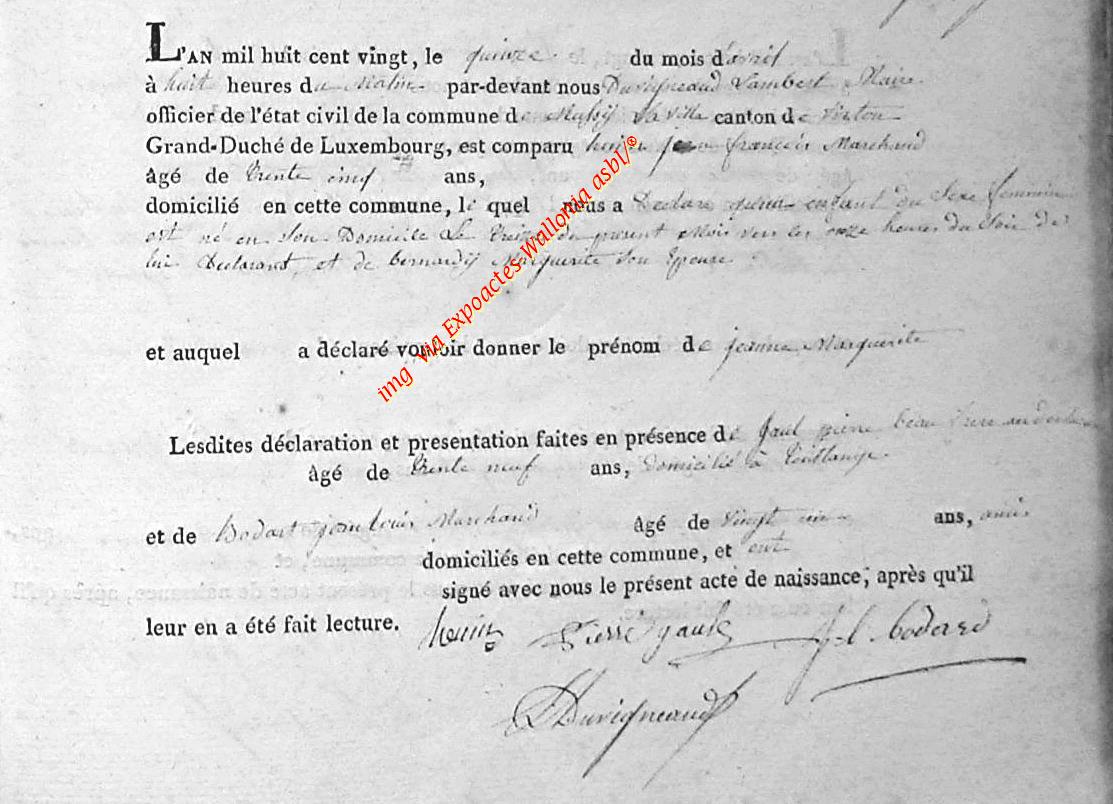 L'AN mil huit cent vingt, le quinze du mois d'avril
à huit heures du Matin par-devant nous Duvigneaud Lambert Maire
officier de l'état civil de la commune de Mussy La Ville canton de Virton
Grand-Duché de Luxembourg, est comparu françois Marchand
âgé de trente cinq ans,
domicilié en cette commune, le quel nous a Declaré qu'un enfant du Sexe feminin
est né en Son Domicile Le treize du present Mois vers les onze heures du Soir de
lui Declarant et de bernardy Marguerite Son Epouse
et auquel a déclaré vouloir donner le prénom de jeanne Marguerite
Lesdites déclaration et presentation faites en présence de Gaul pierre beau frere
âgé de trente neuf ans, domicilié à
et de Bodart jean louis Marchand âgé de vingt ans, amis
domiciliés en cette commune, et ont
signé avec nous le présent acte de naissance, après qu'il
leur en a été fait lecture. henin Pierre gaul j l bodard
Duvigneaud
img via Expoactes-Wallonia asbl/®